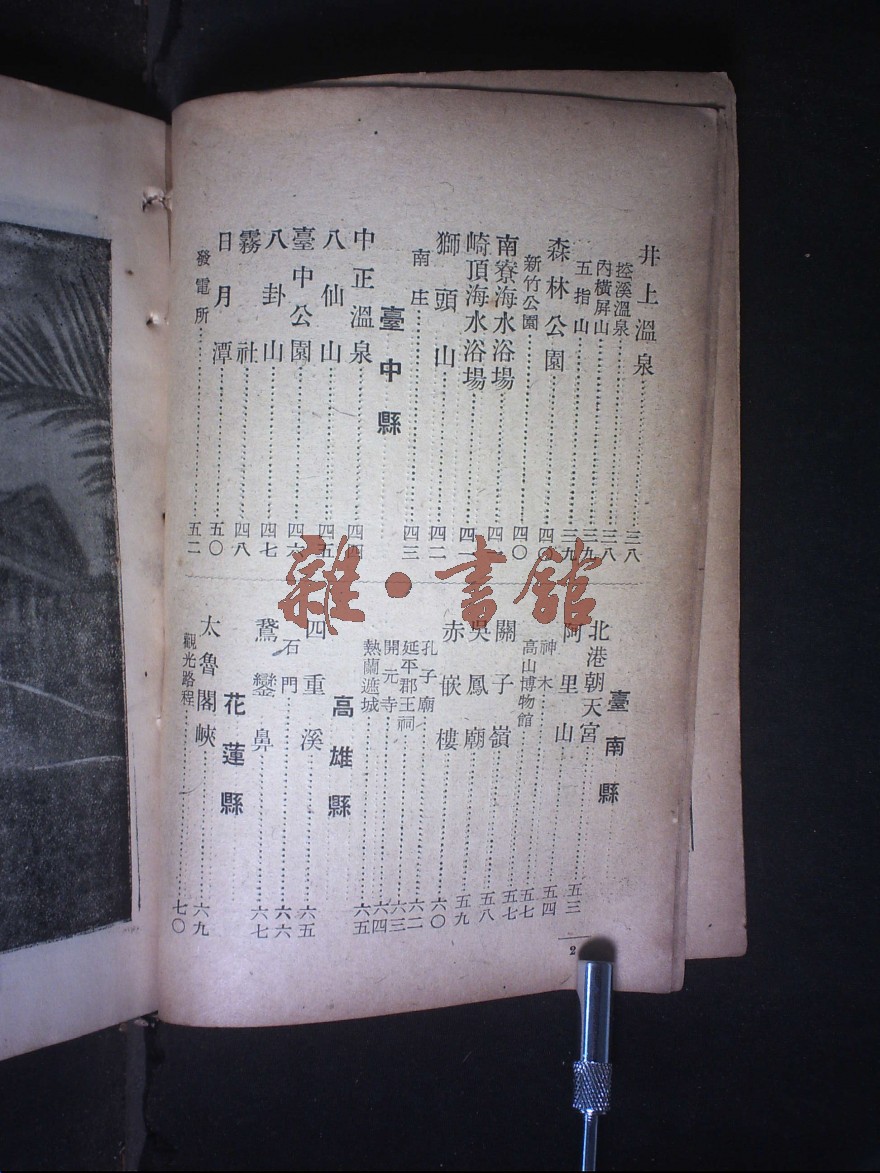 井上溫泉 三八
控溪溫泉 三八
內橫屏山 三九
五指山 三九
森林公園 四〇
新竹公園 四〇
南寮海水浴場
崎頂海水浴場
獅頭山 四二
南庄 四三
臺中縣
中正溫泉 四四
八仙山 四五
臺中公園 四六
八卦山 四七
霧社 四八
日月潭 五〇
發電所 五二
臺南縣
北港朝天宮 五三
阿里山
神木 五四
高山博物館 五七
關子嶺 五七
吳鳳廟 五八
赤嵌樓 五九
孔子廟 六〇
延平郡王祠 六二
開元寺 六三
熱蘭遮城 六四
六五
高雄縣
四重溪 六五
石門 六六
鵞鑾鼻 六七
花蓮縣
太魯閣峽 六九
觀光路程 七〇
2
雜·書館